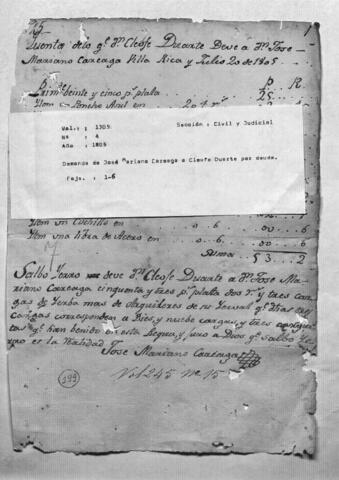 Cuenta de lo qe. Dn. Cleofe Duarte Deve a Dn. Jose
Mariano Carreaga Villa Rica y Julio 20 de 1805
P. R.
Primte. beinte y cinco ps. plata 25
Item un Poncho Azul en
Vol.: 1305 Sección: Civil y Judicial
Nº : 4
Año : 1805
Demanda de José Mariano Careaga a Cleofe Duarte por deuda.
Fojs. : 1-6
Item un Cuchillo en 0..6. 00 6
Item una libra de Acero en 0..6. 00 6
Suma 53.. 2
Salbo Yerro deve Dn. Cleofe Duarte a Dn. Jose Ma-
riano Carreaga cinquenta y tres ps. plata dos rs. y tres car-
gas de Yerba mas de Alquileres de su
cargas corresponden a Dies y nuebe cargas y tres
qe. han benido en esta y juro a Dios qe. salbo Yer-
ro es la Realidad Jose Mariano Carreaga
199
Vol 245 Nº 15